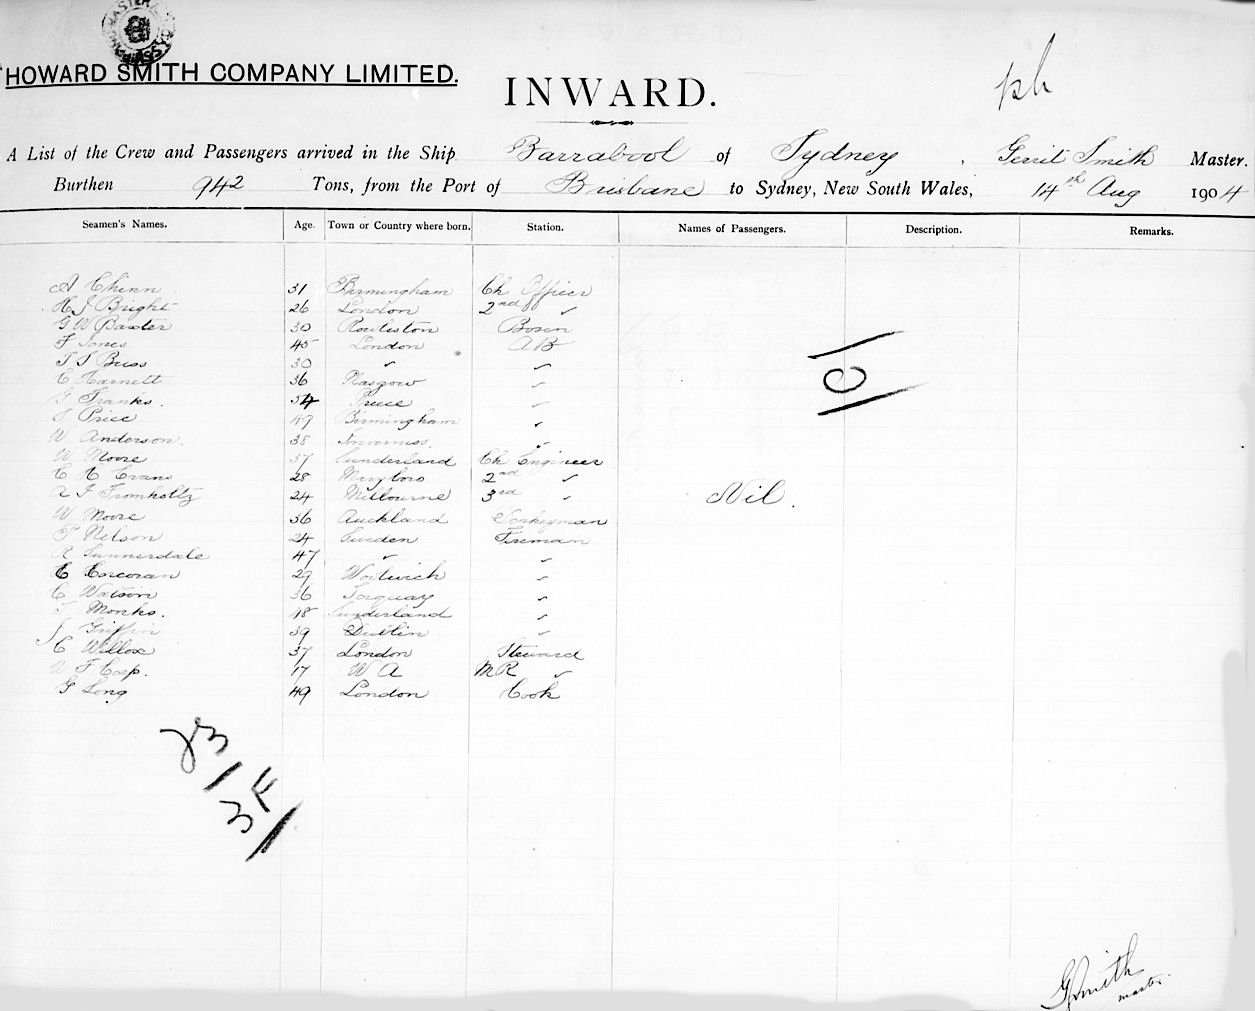 HOWARD SMITH COMPANY LIMITED.
INWARD.
A List of the Crew and Passengers arrived in the Ship Barrabool of Sydney, Gerrit Smith Master.
Burthen 942 Tons, from the Port of Brisbane to Sydney, New South Wales, 14th Aug 1904
Seamen's Names. Age. Town or Country where born. Station. Names of Passengers. Description. Remarks.
A Chinn 31 Birmingham Ch Officer
H J Bright 26 London 2nd "
G W Baxter 30 Rowleston Bosun
F Jones 45 London AB
T S Buss 30 " "
C Harnett 36 Glasgow "
G Franks. 54 "
S Price 49 Birmingham "
W Anderson. 38 Inverness. "
W Moore 37 Sunderland Ch Engineer
C H Evans 28 2nd "
A J Fromholtz 24 Melbourne 3rd "
Nil.
W Moore 36 Auckland Donkeyman
T Nelson 24 Sweden Fireman
R Sunnerdale 47 " "
C Corcoran 29 Woolwich "
C Watson 36 Torquay "
T Monks. 48 Sunderland "
J Griffin 39 Dublin "
C Willox 37 London Steward
W F Cosp. 17 W A M R "
G Long 49 London Cook
23/
3F/
G Smith
master